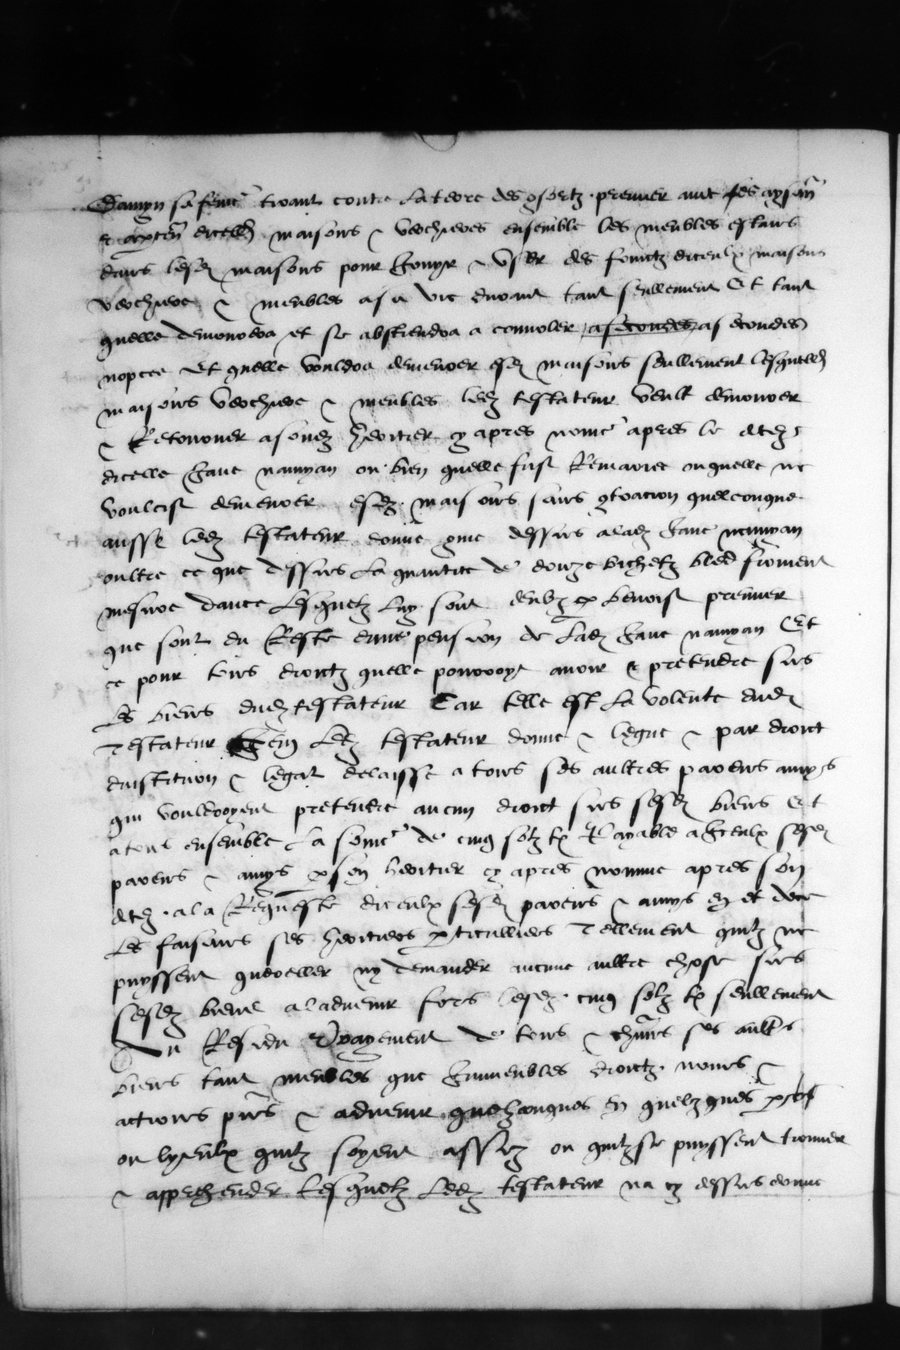 Damyn sa femme tirant contre la terre des premier avec ses aysan
et dicelles maisons & vercheres ensemble les meubles estans
dans lesd maisons pour jouyr & user des fruictz diceulx maisons
verchiere & meubles a sa vie durant tant seullement Et tant
quelle demourera et se abstiendra a convoler as secondes
nopces Et quelle vouldra demeurer esd maisons seullement lesquelles
maisons verchiere & meubles led testateur veult demourer
& Retourner a sond heritier cy apres nomme apres le deces
dicelle Jane namyan ou bien quelle fust Remariee ou quelle ne
voulsist demeurer esd maisons sans quelconque
aussi led testateur donne comme dessus a lad Jane namyan
oultre ce que dessus la quantite de douze bichetz bled froment
mesure dance lesquelz luy sont benoist premier
que sont du Reste dune pension de lad Jane namyan Et
ce pour tous droictz quelle pourroyt avoir & pretendre sus
les biens dud testateur Car telle est la volente dud
Testateur Item led testateur donne & legue & par droict
dinstitution & legat delaisse a tous ses aultres parens amys
qui vouldroyent pretendre aucun droict sus sesd biens Et
a tous ensemble la somme de cinq solz tz payable a iceulx sesd
parens & amys par son heritier cy apres nomme apres son
deces a la Requeste diceulx sesd parens & amys en et de ce
les faisans ses heritiers particulliers Tellement quilz ne
puyssent quereller ny demander aucune aultre chose sus
sesd biens a ladvenir fors lesd cinq solz tz seullement
Du Residu Vrayement de tous & chascuns ses aultres
biens tant meubles que immeubles droictz noms &
actions presens & advenir quelconques en quelzques pars
ou lyeulx quilz soyent assiz ou quilz se puyssent trouver
& apprehender Lesquelz led testateur na cy dessus donne